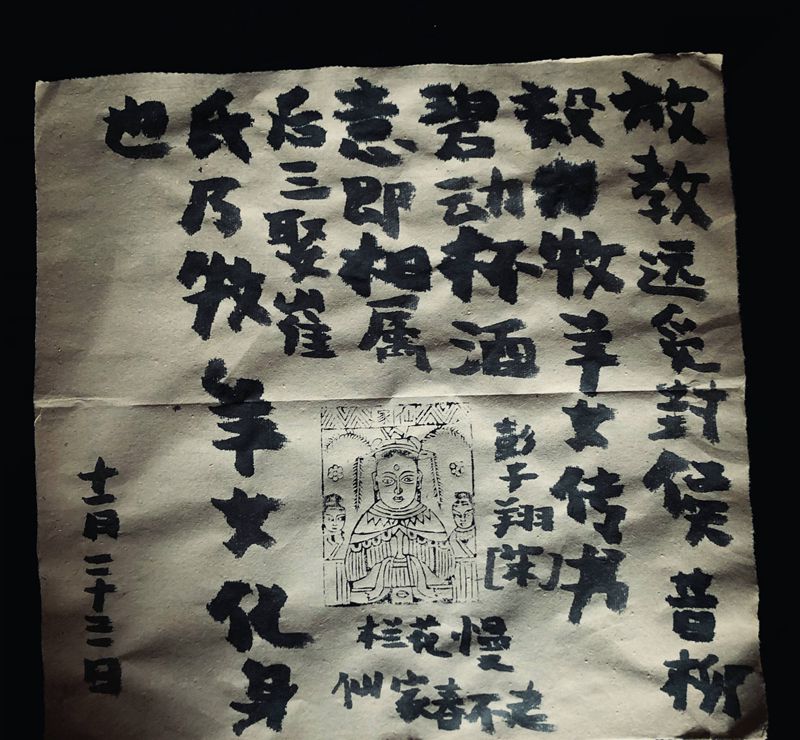 放教远觅封侯昔柳
毅牧羊女传书
碧动杯酒
意即相属
后三娶崔
氏乃牧羊女化身
也
彭子翔[宋]
栏花慢
仙家春不老
十二月二十三日